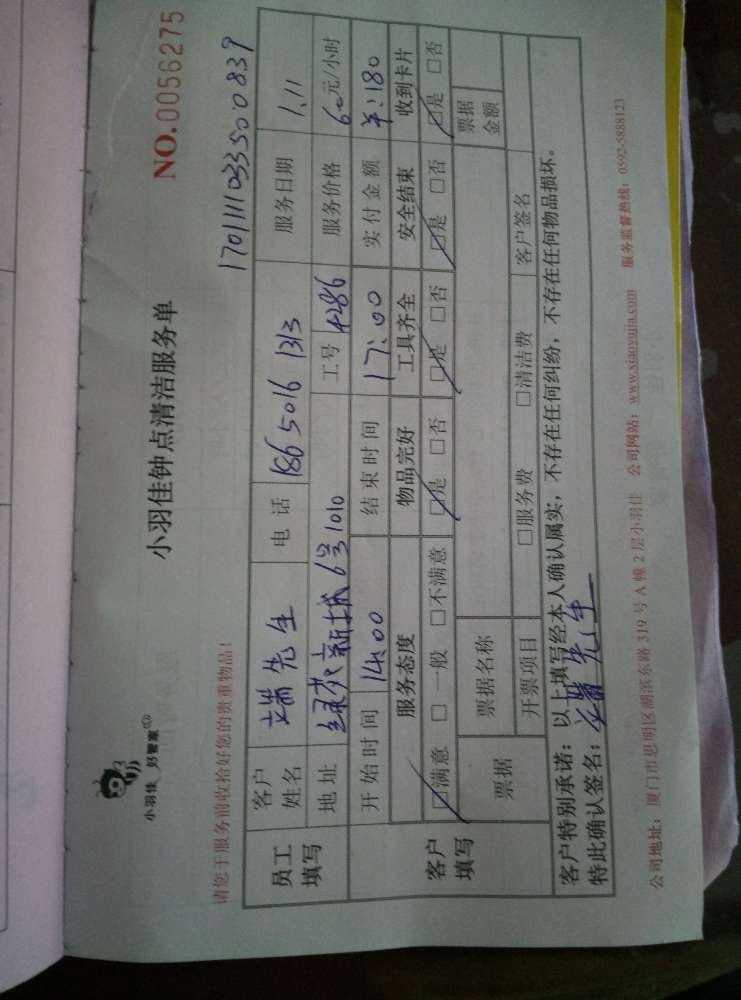 小羽佳 好管家
小羽佳钟点清洁服务单
NO.0056275
请您于服务前收拾好您的贵重物品!
1701111033500839
员工填写 客户姓名 端先生 电话 186 5016 1313 服务日期 1.11
地址 绿苑新城6号1010 工号 4286 服务价格 60元/小时
客户填写 开始时间 14:00 结束时间 17:00 实付金额 ¥:180
服务态度 物品完好 工具齐全 安全结束 收到卡片
☑满意 □一般 □不满意 ☑是 □否 ☑是 □否 ☑是 □否 ☑是 □否
票据 票据名称 票据金额
开票项目 □服务费 □清洁费 客户签名
客户特别承诺:以上填写经本人确认属实,不存在任何纠纷,不存在任何物品损坏。
特此确认签名:端先生
公司地址:厦门市思明区湖滨东路319号A幢2层小羽佳 公司网站:www.xiaoyujia.com 服务监督热线:0592-5888123